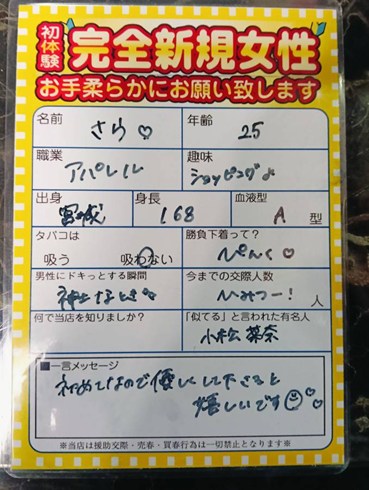 初体験
完全新規女性
お手柔らかにお願い致します
名前 さら♡
年齢 25
職業 アパレル
趣味 ショッピング♪
出身 宮城
身長 168
血液型 A 型
タバコは 吸う 吸わない
勝負下着って? ぴんく♡
男性にドキっとする瞬間
今までの交際人数 ひみつー! 人
何で当店を知りましたか?
「似てる」と言われた有名人 小松菜奈
■一言メッセージ
初めてなので優しくして下さると
嬉しいです
※当店は援助交際・売春・買春行為は一切禁止となります※